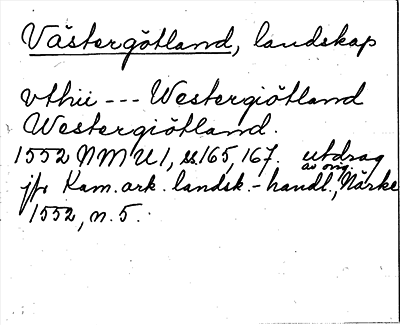 Västergötland, landskap
vthii --- Westergiötland
Westergiötland.
1552 NMU 1, ss 165, 167. utdrag av orig.
jfr Kam. ark. landsk.-handl., Närke
1552, n. 5.